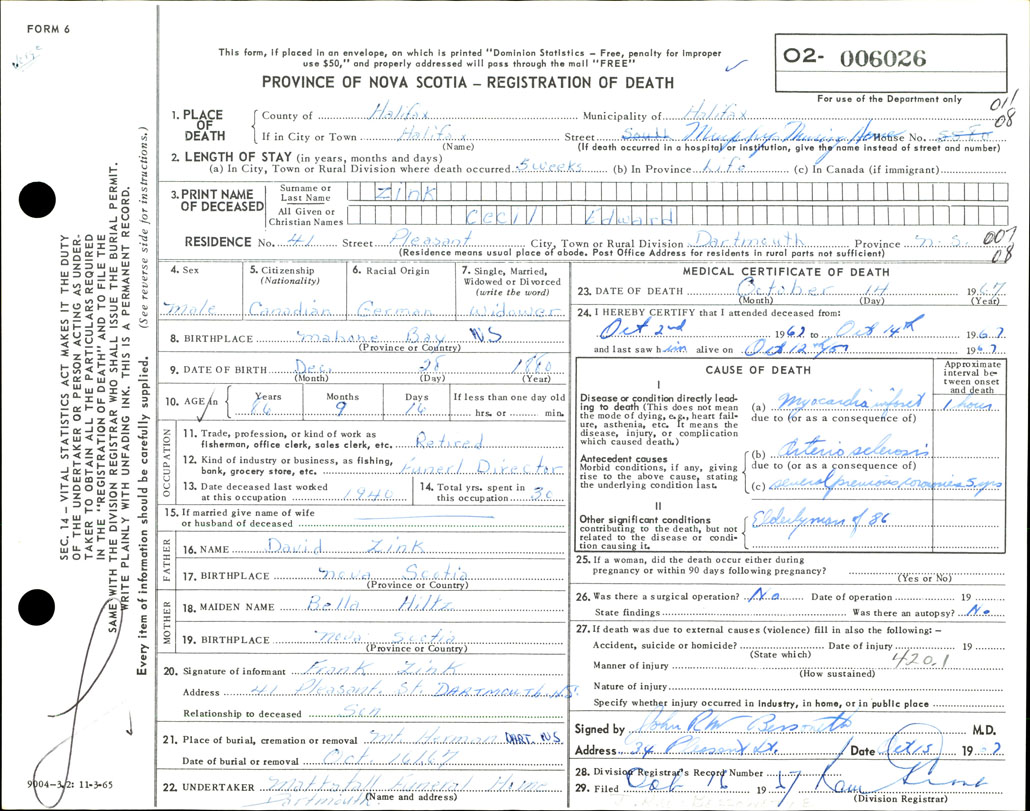 FORM 6
This form, if placed in an envelope, on which is printed "Dominion Statistics – Free, penalty for improper
use $50," and properly addressed will pass through the mail "FREE"
O2- 006026
PROVINCE OF NOVA SCOTIA – REGISTRATION OF DEATH
For use of the Department only
011
08
1. PLACE OF DEATH
County of Halifax Municipality of Halifax
If in City or Town Halifax Street South Murphy Nursing Home House No. 5880
(Name) (If death occurred in a hospital or institution, give the name instead of street and number)
2. LENGTH OF STAY (in years, months and days)
(a) In City, Town or Rural Division where death occurred 5 weeks (b) In Province Life (c) In Canada (if immigrant)
3. PRINT NAME OF DECEASED
Surname or Last Name Zink
All Given or Christian Names Cecil Edward
RESIDENCE No. 41 Street Pleasant City, Town or Rural Division Dartmouth Province N.S. 007
(Residence means usual place of abode. Post Office Address for residents in rural parts not sufficient) 08
4. Sex Male
5. Citizenship (Nationality) Canadian
6. Racial Origin German
7. Single, Married, Widowed or Divorced (write the word) Widower
8. BIRTHPLACE Mahone Bay N.S.
(Province or Country)
9. DATE OF BIRTH Dec. 28 1880
(Month) (Day) (Year)
10. AGE in Years 86 Months 9 Days 16 If less than one day old
hrs. or min.
OCCUPATION
11. Trade, profession, or kind of work as
fisherman, office clerk, sales clerk, etc. Retired
12. Kind of industry or business, as fishing,
bank, grocery store, etc. Funerl Director
13. Date deceased last worked
at this occupation 1940
14. Total yrs. spent in
this occupation 30
15. If married give name of wife
or husband of deceased
FATHER
16. NAME David Zink
17. BIRTHPLACE Nova Scotia
(Province or Country)
MOTHER
18. MAIDEN NAME Bella Hiltz
19. BIRTHPLACE Nova Scotia
(Province or Country)
20. Signature of informant Frank Zink
Address 41 Pleasant St. DARTMOUTH N.S.
Relationship to deceased Son
21. Place of burial, cremation or removal Mt Herman DART. N.S.
Date of burial or removal Oct 16/67
22. UNDERTAKER Mattatall Funeral Home
Dartmouth (Name and address)
MEDICAL CERTIFICATE OF DEATH
23. DATE OF DEATH October 14 1967
(Month) (Day) (Year)
24. I HEREBY CERTIFY that I attended deceased from:
Oct 2nd 1967 to Oct 14th 1967
and last saw him alive on Oct 12 1967
CAUSE OF DEATH
Approximate interval between onset and death
I
Disease or condition directly leading to death (This does not mean the mode of dying, e.g., heart failure, asthenia, etc. It means the disease, injury, or complication which caused death.)
(a) Myocardia infarct 1 hour
due to (or as a consequence of)
Antecedent causes
Morbid conditions, if any, giving rise to the above cause, stating the underlying condition last.
(b) Arterio sclerosis
due to (or as a consequence of)
(c) several previous coronaries 5 yrs
II
Other significant conditions
contributing to the death, but not related to the disease or condition causing it.
Elderly man of 86
25. If a woman, did the death occur either during
pregnancy or within 90 days following pregnancy?
(Yes or No)
26. Was there a surgical operation? No Date of operation 19
State findings Was there an autopsy? No
27. If death was due to external causes (violence) fill in also the following: –
Accident, suicide or homicide? Date of injury 19
(State which) 420.1
Manner of injury
(How sustained)
Nature of injury
Specify whether injury occurred in industry, in home, or in public place
Signed by John R M M.D.
Address 34 Pleasant St. Date Oct 15 1967
28. Division Registrar's Record Number
29. Filed Oct 16 1967
(Division Registrar)
SEC. 14 – VITAL STATISTICS ACT MAKES IT THE DUTY
OF THE UNDERTAKER OR PERSON ACTING AS UNDER-
TAKER TO OBTAIN ALL THE PARTICULARS REQUIRED
IN THE "REGISTRATION OF DEATH" AND TO FILE THE
SAME WITH THE DIVISION REGISTRAR WHO SHALL ISSUE THE BURIAL PERMIT.
WRITE PLAINLY WITH UNFADING INK. THIS IS A PERMANENT RECORD.
Every item of information should be carefully supplied. (See reverse side for instructions.)
9004-3/2: 11-3-65